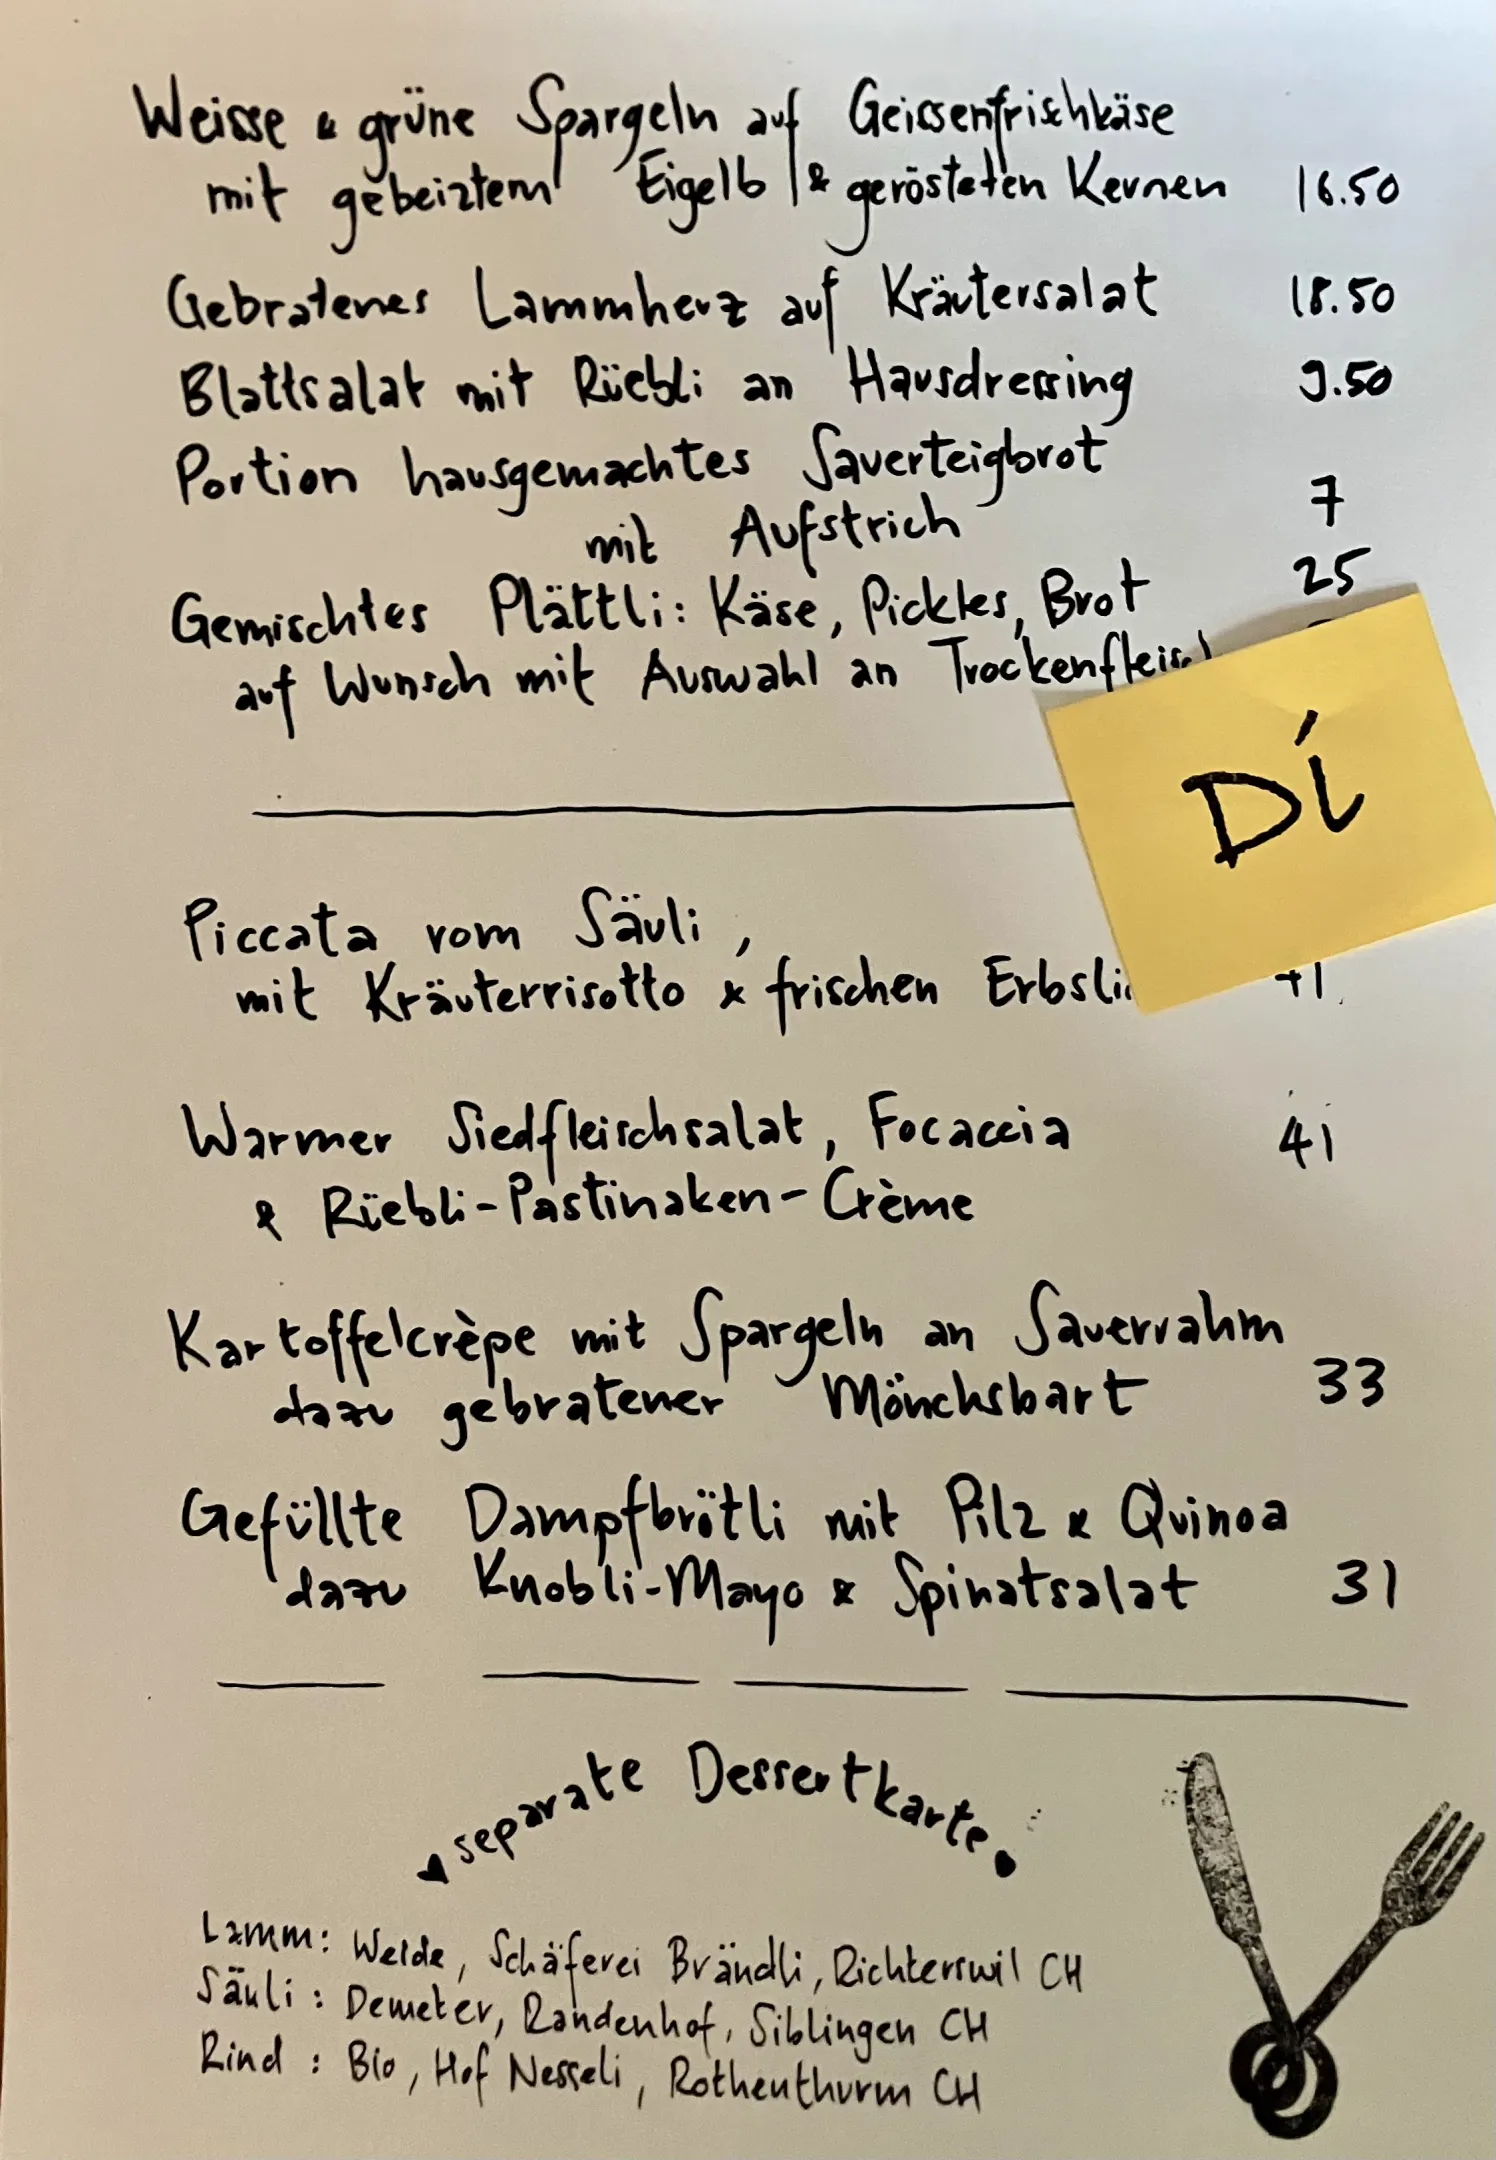 Weisse & grüne Spargeln auf Geissenfrischkäse
mit gebeiztem Eigelb & gerösteten Kernen 16.50
Gebratenes Lammherz auf Kräutersalat 18.50
Blattsalat mit Rüebli an Hausdressing 9.50
Portion hausgemachtes Sauerteigbrot
mit Aufstrich 7
Gemischtes Plättli: Käse, Pickles, Brot 25
auf Wunsch mit Auswahl an
DI
Piccata vom Säuli,
mit Kräuterrisotto & frischen
Warmer Siedfleischsalat, Focaccia 41
& Rüebli-Pastinaken-Crème
Kartoffelcrèpe mit Spargeln an Sauerrahm
dazu gebratener Mönchsbart 33
Gefüllte Dampfbrötli mit Pilz & Quinoa
dazu Knobli-Mayo & Spinatsalat 31
separate Dessertkarte
Lamm: Weide, Schäferei Brändli, Richterswil CH
Säuli: Demeter, Randenhof, Siblingen CH
Rind: Bio, Hof Nesseli, Rothenthurm CH